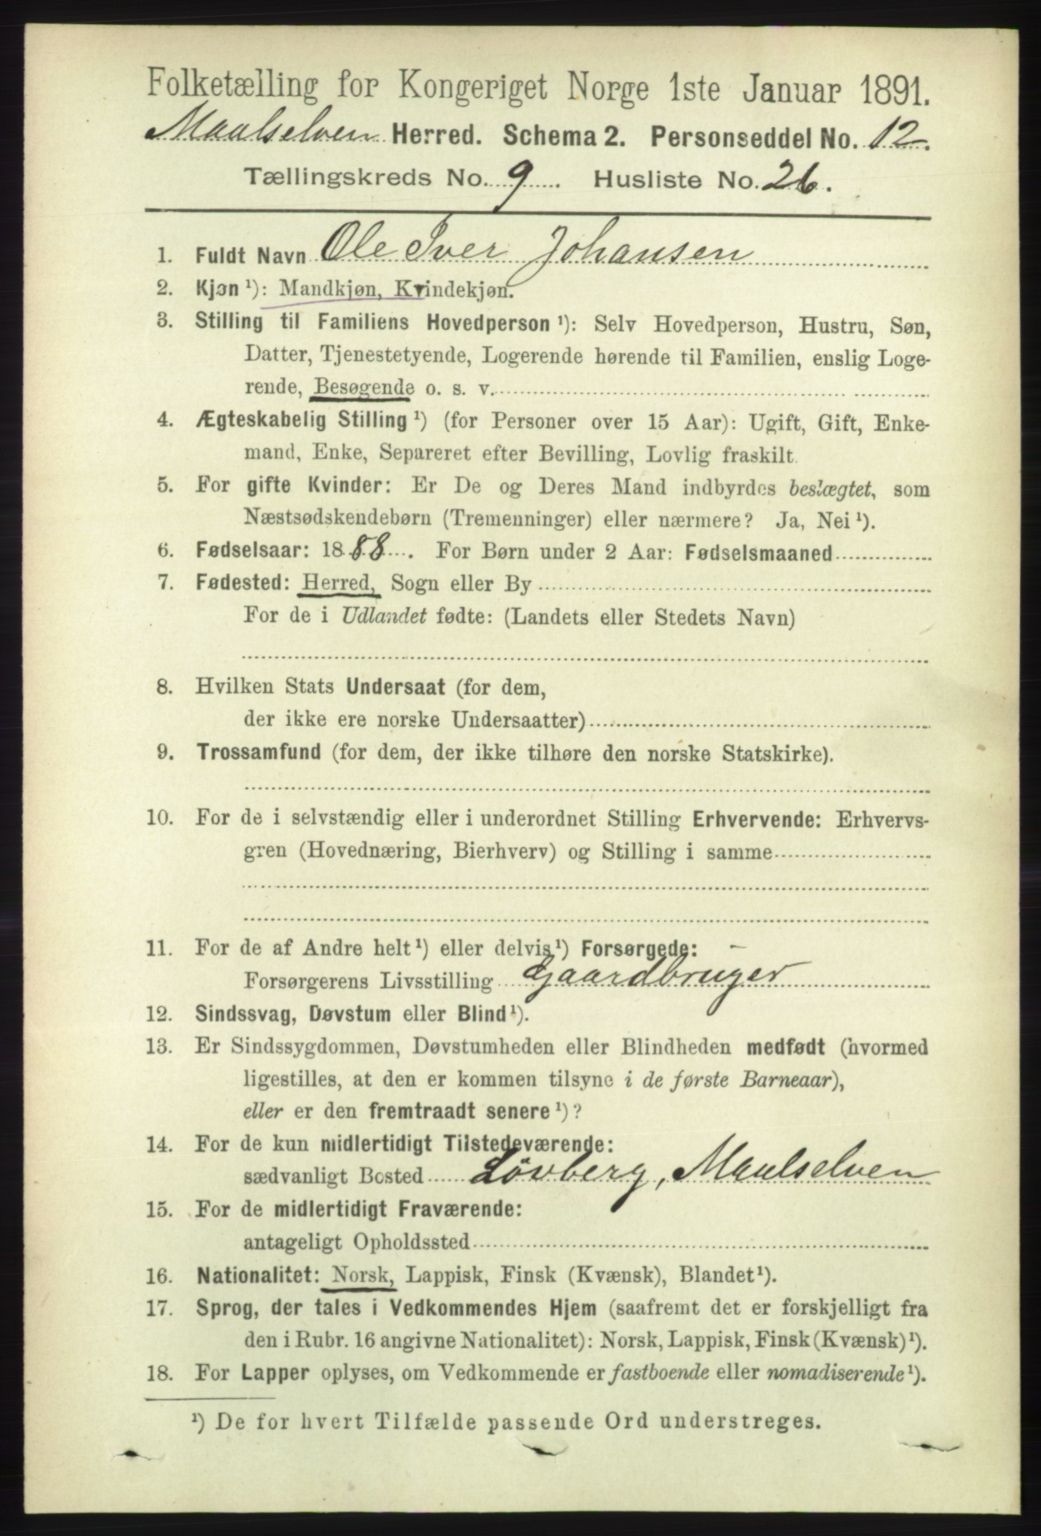 Folketælling for Kongeriget Norge 1ste Januar 1891.
Maalselven Herred. Schema 2. Personseddel No. 12.
Tællingskreds No. 9. Husliste No. 26.
1. Fuldt Navn Ole Iver Johansen
2. Kjøn ¹): Mandkjøn, Kvindekjøn.
3. Stilling til Familiens Hovedperson ¹): Selv Hovedperson, Hustru, Søn,
Datter, Tjenestetyende, Logerende hørende til Familien, enslig Loge-
rende, Besøgende o. s. v.
4. Ægteskabelig Stilling ¹) (for Personer over 15 Aar): Ugift, Gift, Enke-
mand, Enke, Separeret efter Bevilling, Lovlig fraskilt.
5. For gifte Kvinder: Er De og Deres Mand indbyrdes beslægtet, som
Næstsødskendebørn (Tremenninger) eller nærmere? Ja, Nei ¹).
6. Fødselsaar: 1888. For Børn under 2 Aar: Fødselsmaaned
7. Fødested: Herred, Sogn eller By
For de i Udlandet fødte: (Landets eller Stedets Navn)
8. Hvilken Stats Undersaat (for dem,
der ikke ere norske Undersaatter)
9. Trossamfund (for dem, der ikke tilhøre den norske Statskirke).
10. For de i selvstændig eller i underordnet Stilling Erhvervende: Erhvervs-
gren (Hovednæring, Bierhverv) og Stilling i samme
11. For de af Andre helt ¹) eller delvis ¹) Forsørgede:
Forsørgerens Livsstilling Gaardbruger
12. Sindssvag, Døvstum eller Blind ¹).
13. Er Sindssygdommen, Døvstumheden eller Blindheden medfødt (hvormed
ligestilles, at den er kommen tilsyne i de første Barneaar),
eller er den fremtraadt senere ¹)?
14. For de kun midlertidigt Tilstedeværende:
sædvanligt Bosted Løvberg, Maalselven
15. For de midlertidigt Fraværende:
antageligt Opholdssted
16. Nationalitet: Norsk, Lappisk, Finsk (Kvænsk), Blandet ¹).
17. Sprog, der tales i Vedkommendes Hjem (saafremt det er forskjelligt fra
den i Rubr. 16 angivne Nationalitet): Norsk, Lappisk, Finsk (Kvænsk) ¹).
18. For Lapper oplyses, om Vedkommende er fastboende eller nomadiserende ¹).
¹) De for hvert Tilfælde passende Ord understreges.